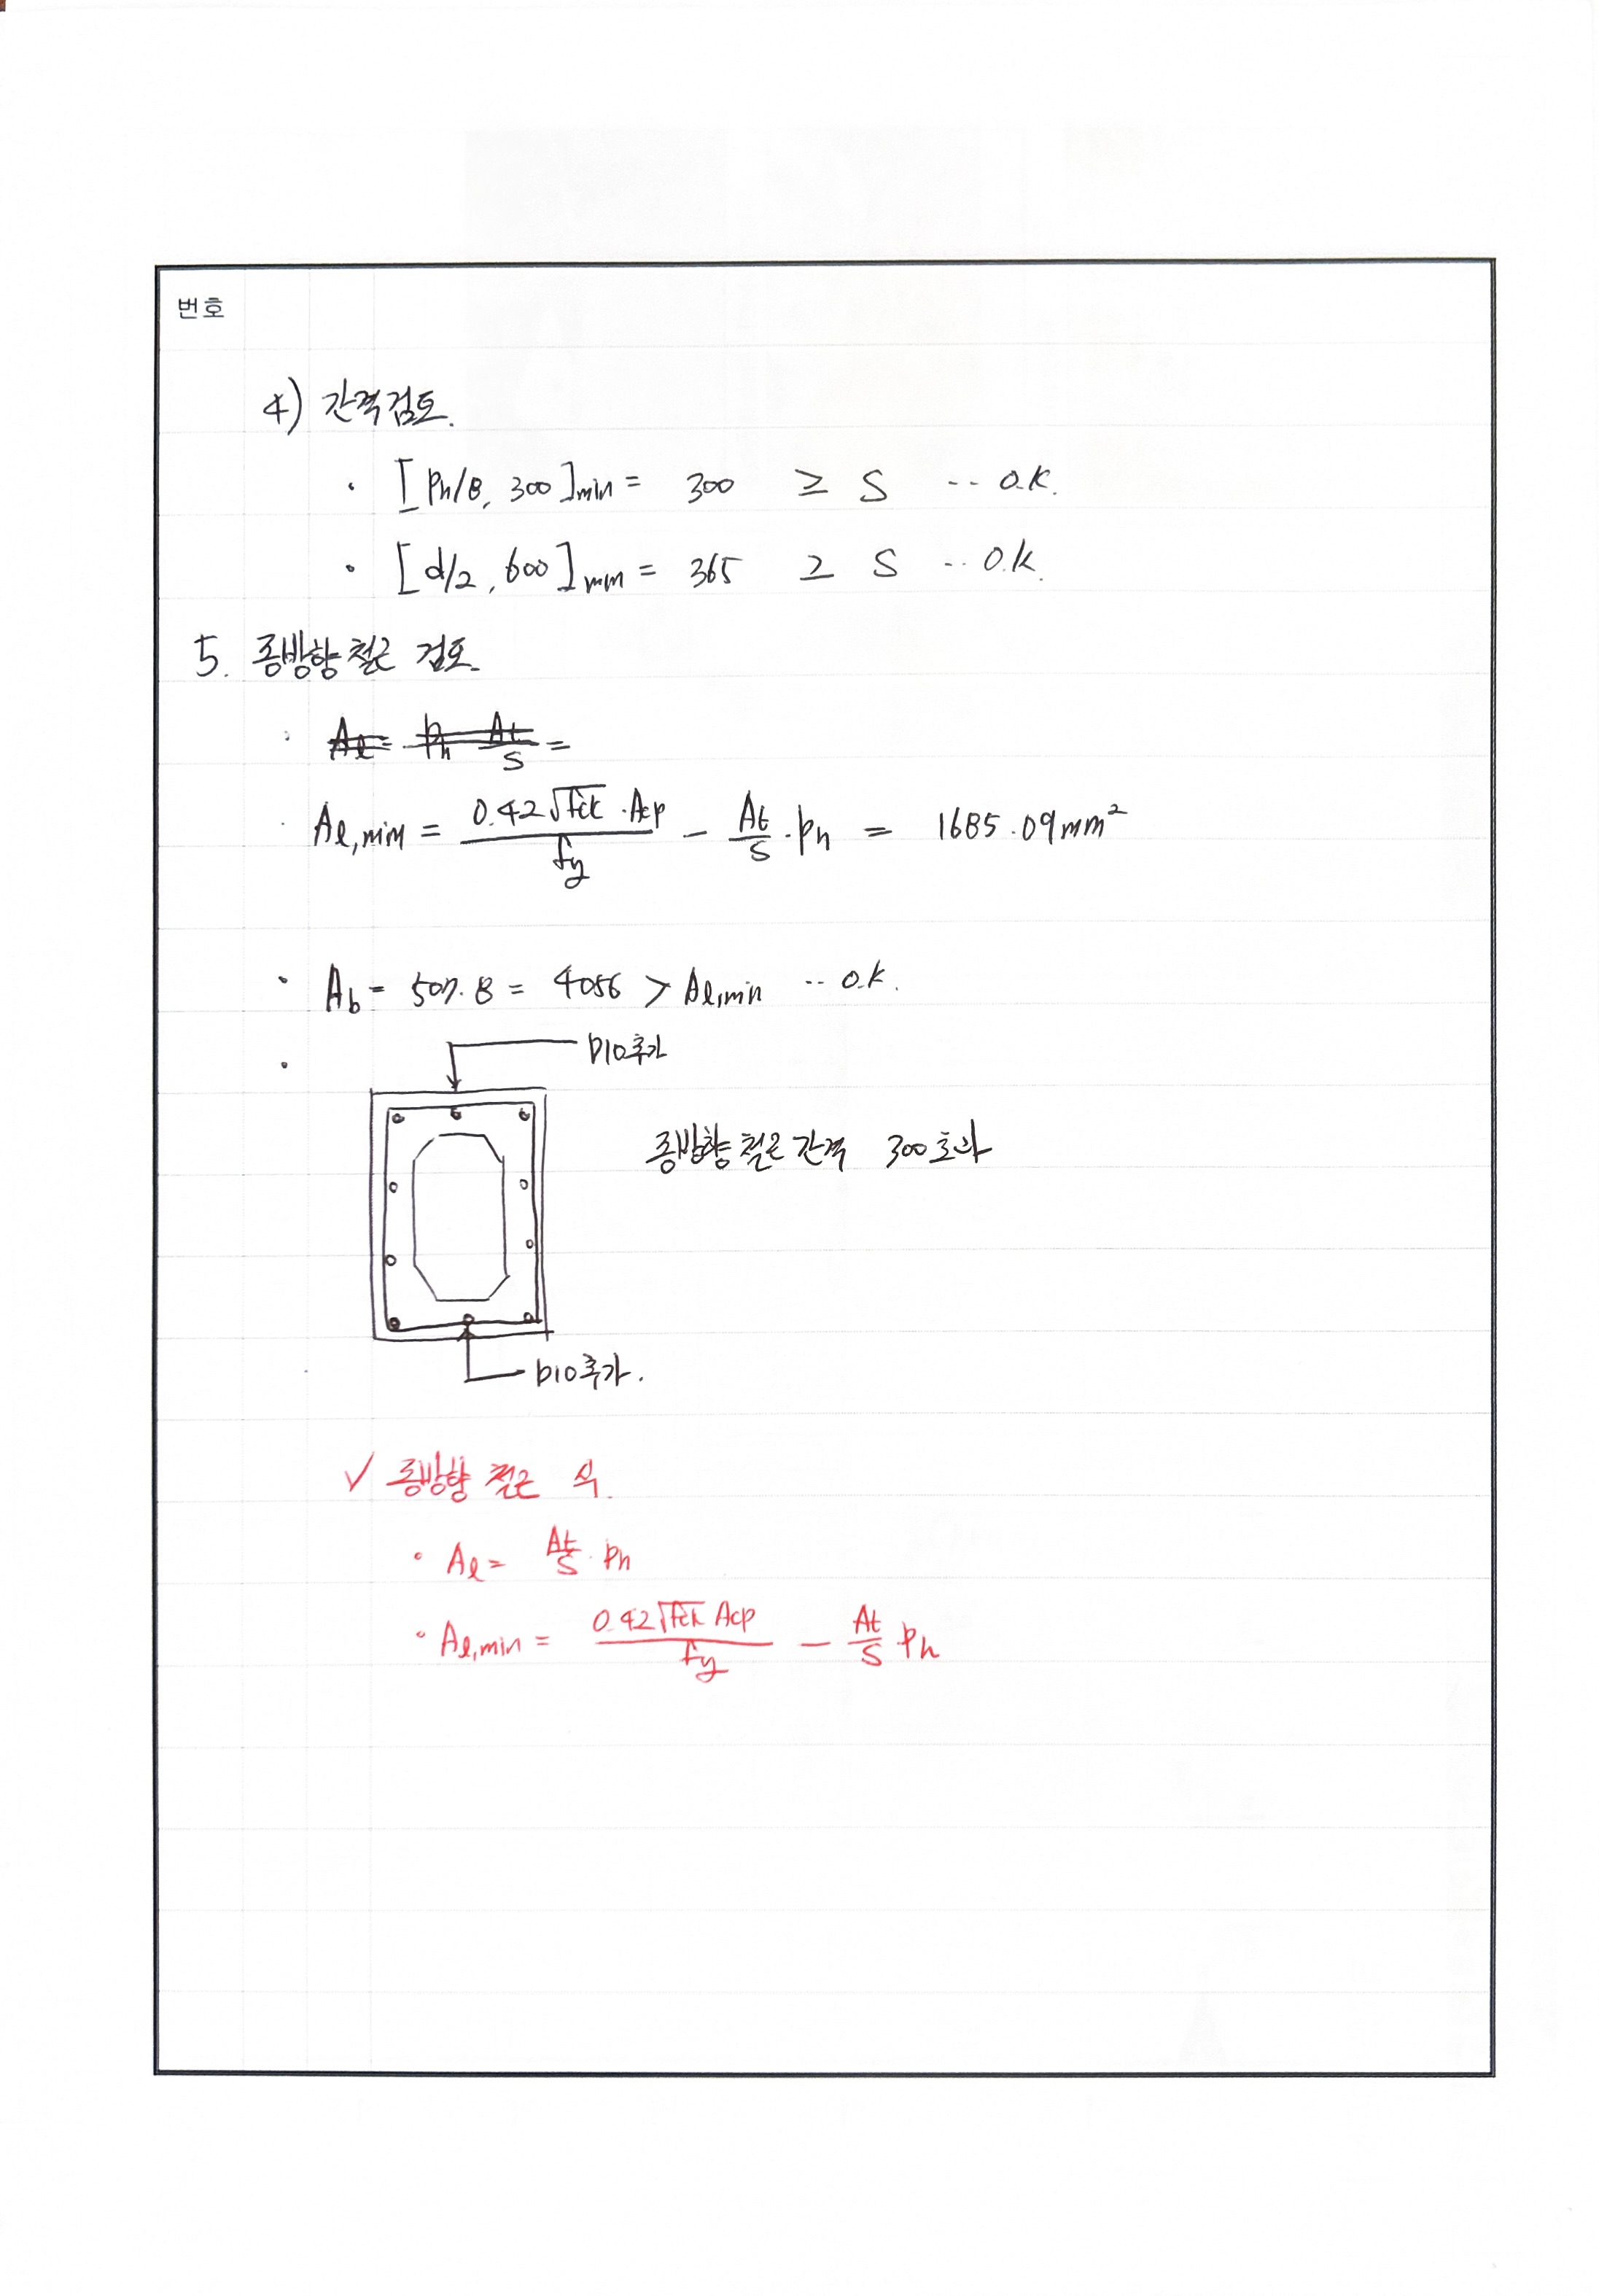 번호
4) 간격검토.
· [Ph/8, 300]min = 300 ≥ S ·· O.K.
· [d/2, 600]min = 365 ≥ S ·· O.K.
5. 종방향 철근 검토.
· Aℓ = Ph At/S =
· Aℓ,min = 0.42√fck · Acp / fy − At/S · Ph = 1685.09mm²
· Ab = 507·8 = 4056 > Aℓ,min ·· O.K.
· D10추가
종방향 철근 간격 300초과
D10추가.
✓ 종방향 철근 식.
· Aℓ = At/S · Ph
· Aℓ,min = 0.42√fck Acp / fy − At/S Ph